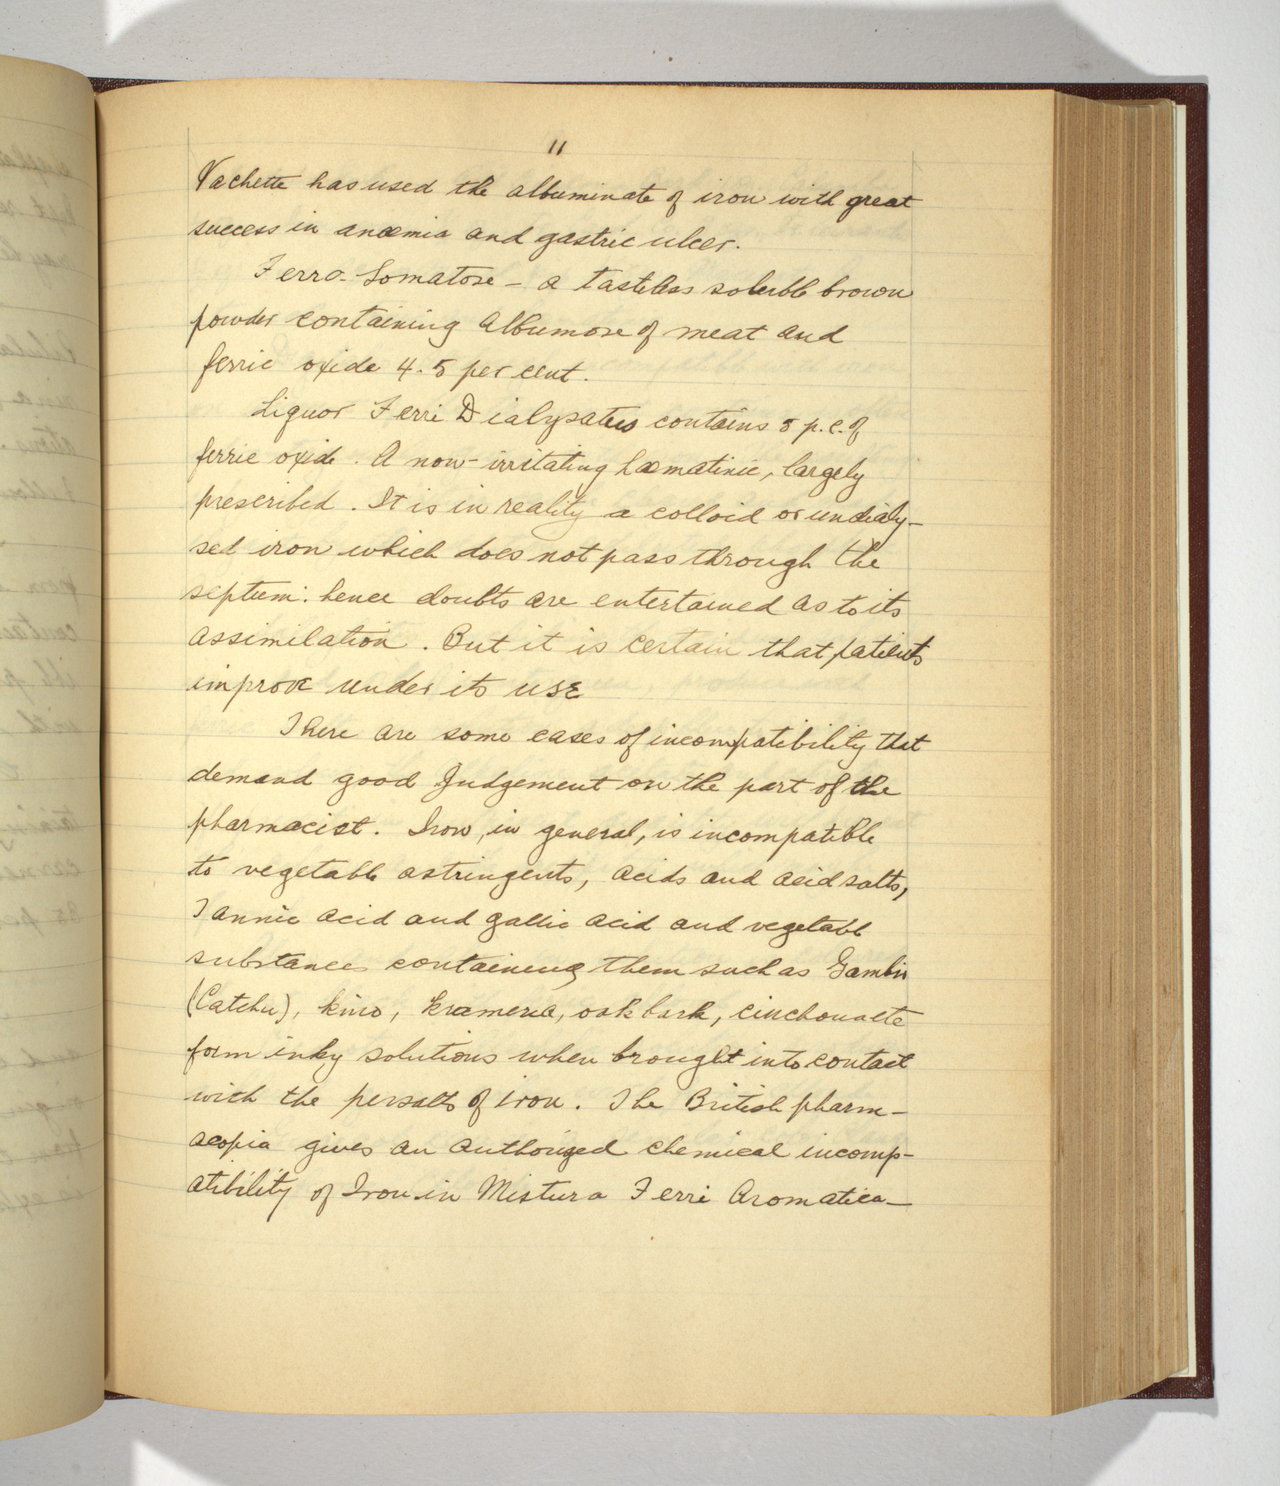 11
Vachette has used the albuminate of iron with great
success in anæmia and gastric ulcer.
Ferro-Somatose – a tasteless soluble brown
powder containing albumose of meat and
ferric oxide 4.5 per cent.
Liquor Ferri Dialysatus contains 5 p.c. of
ferric oxide. A non-irritating hæmatinic, largely
prescribed. It is in reality a colloid or undialy-
sed iron which does not pass through the
septum: hence doubts are entertained as to its
assimilation. But it is certain that patients
improve under its use
There are some cases of incompatibility that
demand good Judgement on the part of the
pharmacist. Iron, in general, is incompatible
to vegetable astringents, acids and acid salts,
Tannic acid and gallic acid and vegetable
substances containing them such as Gambir
(Catchu), kino, krameria, oak bark, cinchona etc
form inky solutions when brought into contact
with the persalts of iron. The British pharm-
acopia gives an authorized chemical incomp-
atibility of Iron in Mistura Ferri Aromatica—